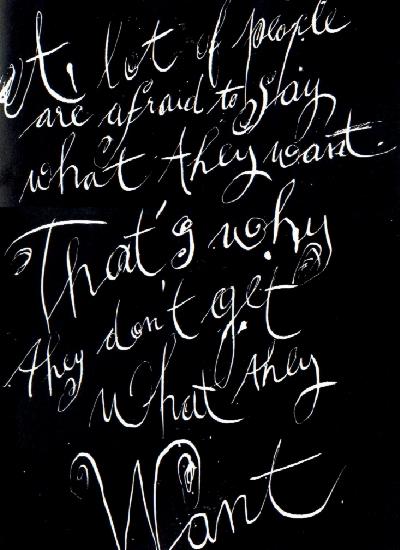 A lot of people
are afraid to say
what they want.
That's why
they don't get
what they
Want.